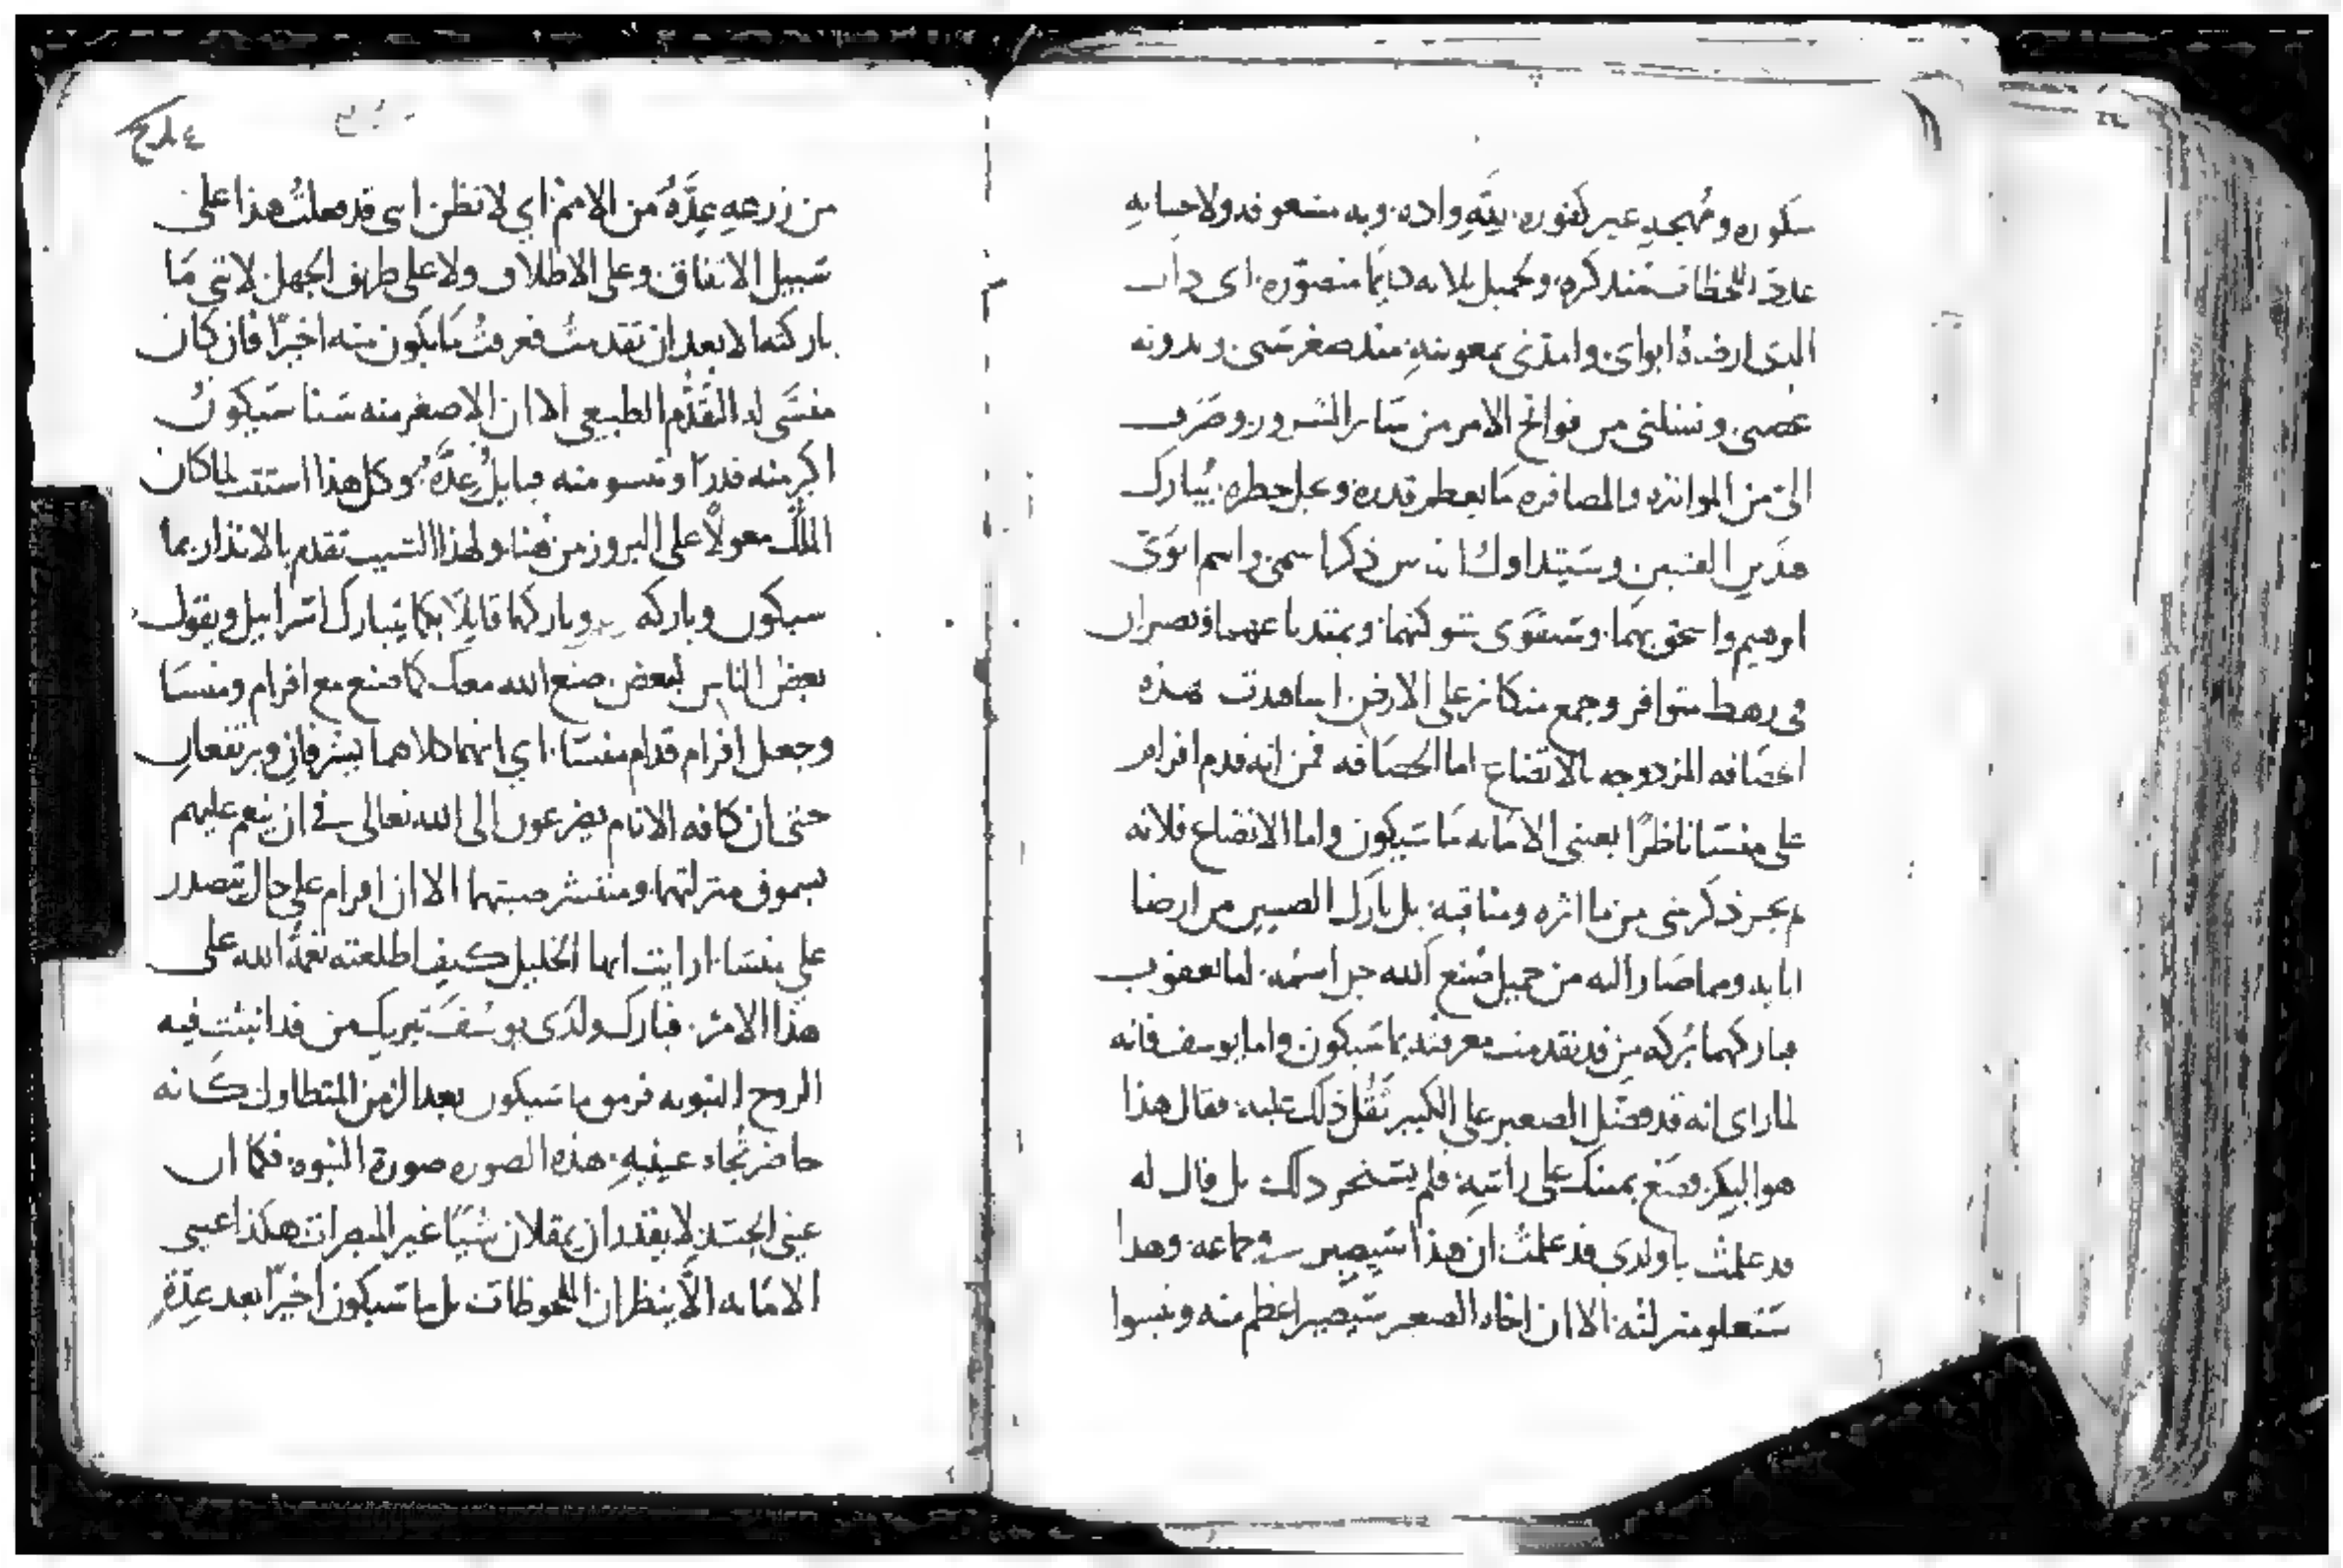 شكوره ومهجه غير كفوره بيته واده وبه مشعوفه ولاحسانه
عدد اللحظات متذكره ولجميل بلائه دايما متصوره اى داب
الذى ارضاه ابواى وامدنى بمعونته منذ صغر سنى وبدونه
غصنى ونشلنى من فوادح الامر من ساير الشرور وصرف
الى من الموازره والمصافره ما يعظم قدره وعلى خطره يبارك
هذين الغلامين وسيتداولك الناس ذكر اسمى واسم ابوى
ابرهيم واسحق بهما وستقوى شوكتهما ويمتد باعهما ويصيران
فى رهط متوافر وجمع متكاثر على الارض اشاهدت هذه
الحصافه المزدوجه بالاتضاع اما الحصافه فمن انه قدم افرام
على منسا ناظرا بعينى الامانه ما سيكون واما الاتضاع فلانه
لم يجر ذكر شى من مااثره ومناقبه بل بارك الصبيين من ارضا
ابايه ومما صار اليه من جميل صنع الله جل اسمه اما يعقوب
فباركهما بركه من قد تقدمت معرفته بما سيكون واما يوسف فانه
لما راى انه قد فضل الصغير على الكبير ثقل ذلك عليه فقال هذا
هو البكر فضع يمينك على راسه فلم يستحر ذلك بل قال له
قد علمت ياولدى قد علمت ان هذا سيصير فى جماعه وهذا
ستعلو منزلته الا ان اخاه الصغير سيصير اعظم منه وينسوا
من زرعه عدة من الامم اي لا تظن انى قد فعلت هذا على
سبيل الاتفاق وعلى الاطلاق ولا على طريق الجهل لاننى ما
باركته الا بعد ان تقدمت فعرفت ما يكون منه اخيرا فان كان
منسى له التقدم الطبيعى الا ان الاصغر منه سنا سيكون
اكبر منه قدرا وتنسو منه قبايل عدة وكل هذا استتب لما كان
الملك معولا على البروز من هنا ولهذا السبب تقدم بالانذار بما
سيكون وباركه وباركهما قايلا بكما يتبارك اسراييل ويقول
بعض الناس لبعض صنع الله معك كما صنع مع افرام ومنسا
وجعل افرام قدام منسا اي انهما كلاهما يشرفان ويرتفعان
حتى ان كافه الانام يضرعون الى الله تعالى فى ان ينعم عليهم
بسموق منزلتهما ومنتشر صيتهما الا ان افرام على حال يتصدر
على منسا ارايت ايها الخليل كيف اطلعته نعمة الله على
هذا الامر فبارك ولدى يوسف تبريك من قد انبثت فيه
الروح النبويه فرمق ما سيكون بعد الزمن المتطاول كانه
حاضر تجاه عينيه هذه الصوره صورة النبوه فكما ان
عينى الجسد لا يقتدران يمقلان شيا غير المبصرات هكذا عينى
الامانه الا ينظران اللحوظات بل ما سيكون اخيرا بعد عدة